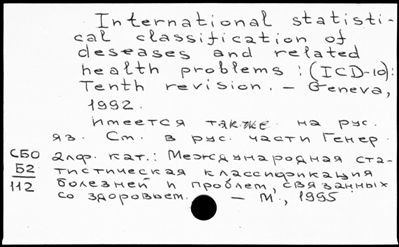 International statisti-
cal classification of
deseases and related
health problems : (ICD-10):
Tenth revision. – Geneva,
1992.
имеется также на рус.
яз. См. в рус. части Генер.
СБО алф. кат.: Международная ста-
Б2 тистическая классификация
112 болезней и проблем, связанных
со здоровьем. – М., 1995